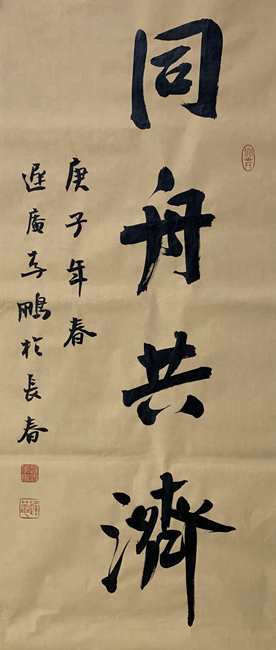 同舟共濟
庚子年春
遲廣予鵬於長春